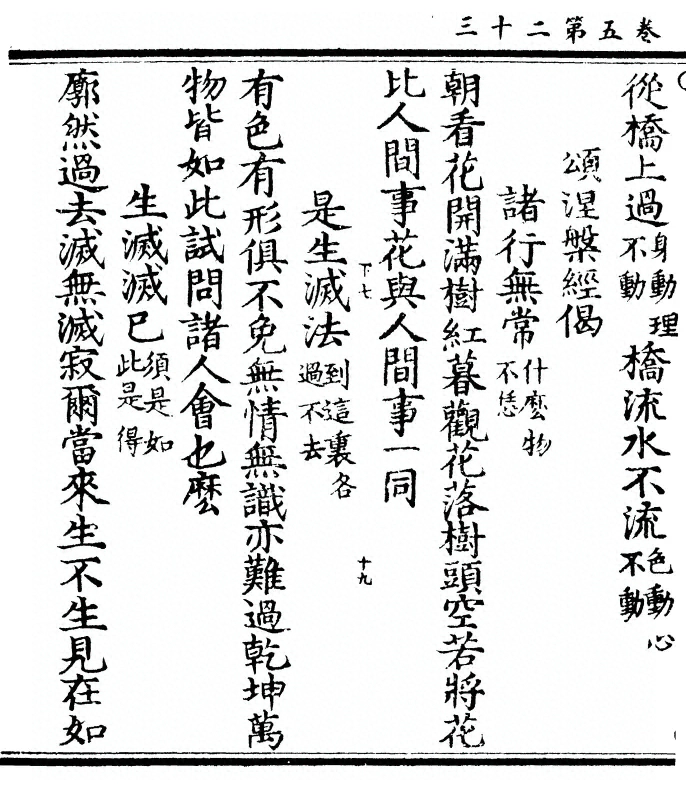 卷五第二十三
從橋上過身動理不動橋流水不流色動心不動
頌涅槃經偈
諸行無常什麼物不恁
朝看花開滿樹紅暮觀花落樹頭空若將花
比人間事花與人間事一同
下七
十九
是生滅法到這裏各過不去
有色有形俱不免無情無識亦難過乾坤萬
物皆如此試問諸人會也麼
生滅滅巳須是如此是得
廓然過去滅無滅寂爾當來生不生見在如